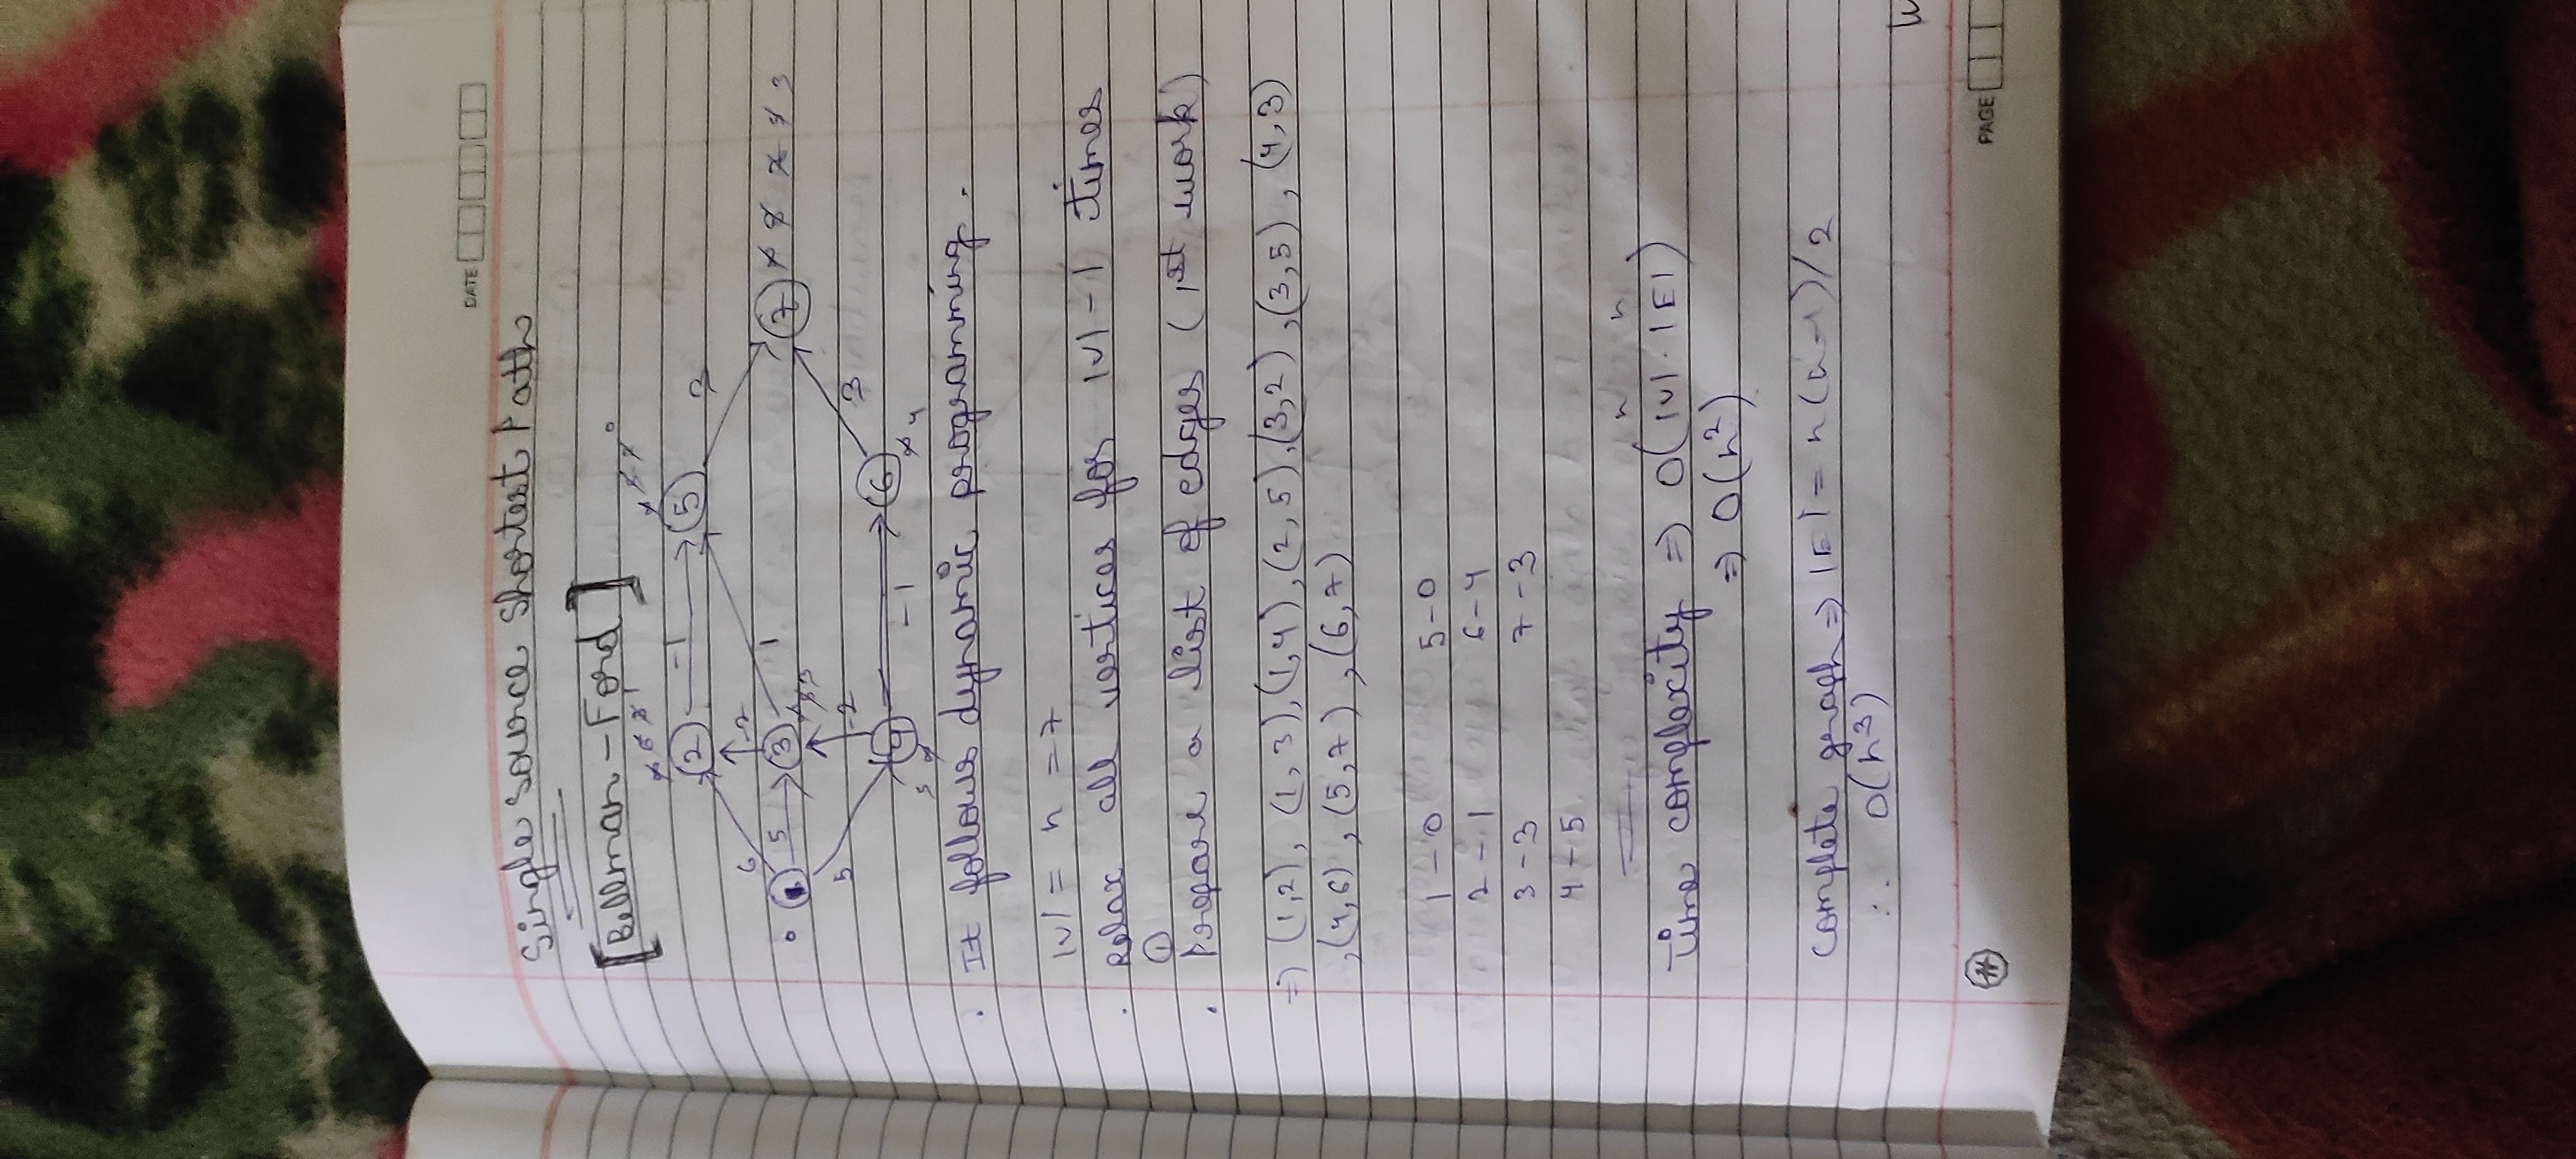 DATE
Single Source Shortest Path
[Bellman-Ford]
6 1
0 1 2 -1 5 0
6 -2
5 3 1 3 7 3
3
5 -2
5 4 -1 6 4
3
. It follows dynamic programming.
|V| = n = 7
. Relax all vertices for |V| - 1 times
① . Prepare a list of edges (1st work)
⇒ (1,2), (1,3), (1,4), (2,5), (3,2), (3,5), (4,3)
, (4,6), (5,7), (6,7)
1 - 0 5 - 0
2 - 1 6 - 4
3 - 3 7 - 3
4 - 5
n n
Time complexity ⇒ O(|V|.|E|)
⇒ O(n²)
Complete graph ⇒ |E| = n(n-1)/2
∴ O(n³)
PAGE